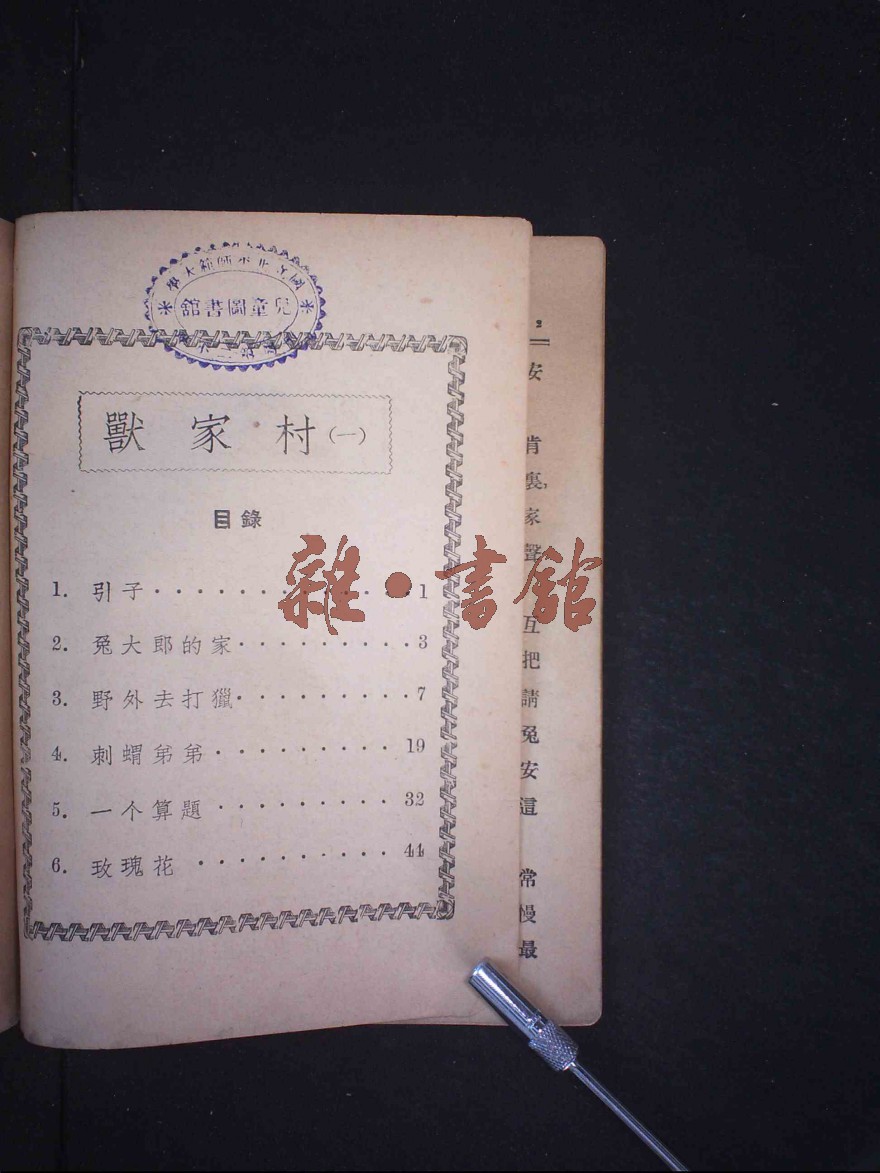 國立北平師範大學
兒童圖書館
獸家村(一)
目錄
雜·書館
1. 引子 1
2. 兔大郎的家 3
3. 野外去打獵 7
4. 刺蝟弟弟 19
5. 一个算題 32
6. 玫瑰花 44
2
安
肯
裏，
家
聲
互
把
請
兔
安
這
常
慢
最